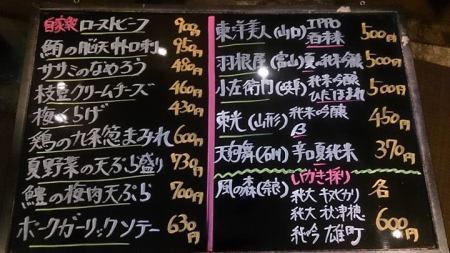 自家製 ローストビーフ 900円
鮪の脳天 950円
ササミのなめろう 480円
枝豆クリームチーズ 460円
梅くらげ 430円
鶏の九条葱まみれ 600円
夏野菜の天ぷら盛り 730円
鱧の梅肉天ぷら 700円
ポークガーリックソテー 630円
東洋美人(山口) IPPO 500円
羽根屋(富山) 夏の純米吟醸 500円
小左衛門(岐阜) 純米吟醸 ひだほまれ 500円
東光(山形) 純米吟醸 450円
天狗舞(石川) 辛口夏純米 370円
風の森(奈良) いかき採り 各
純大 キヌヒカリ
純大 秋津穂 600円
純吟 雄町